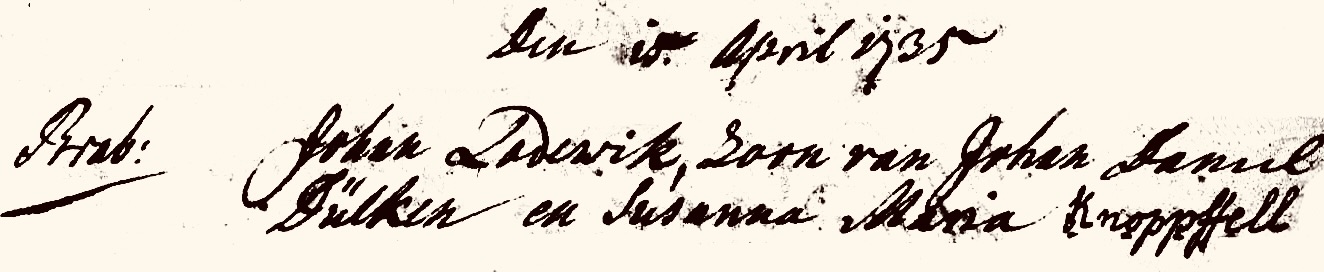 Den 15. April 1735
Brab: Johan Lodewik, Zoon van Johan Daniel
Dülken en Susanna Maria Knoppffell